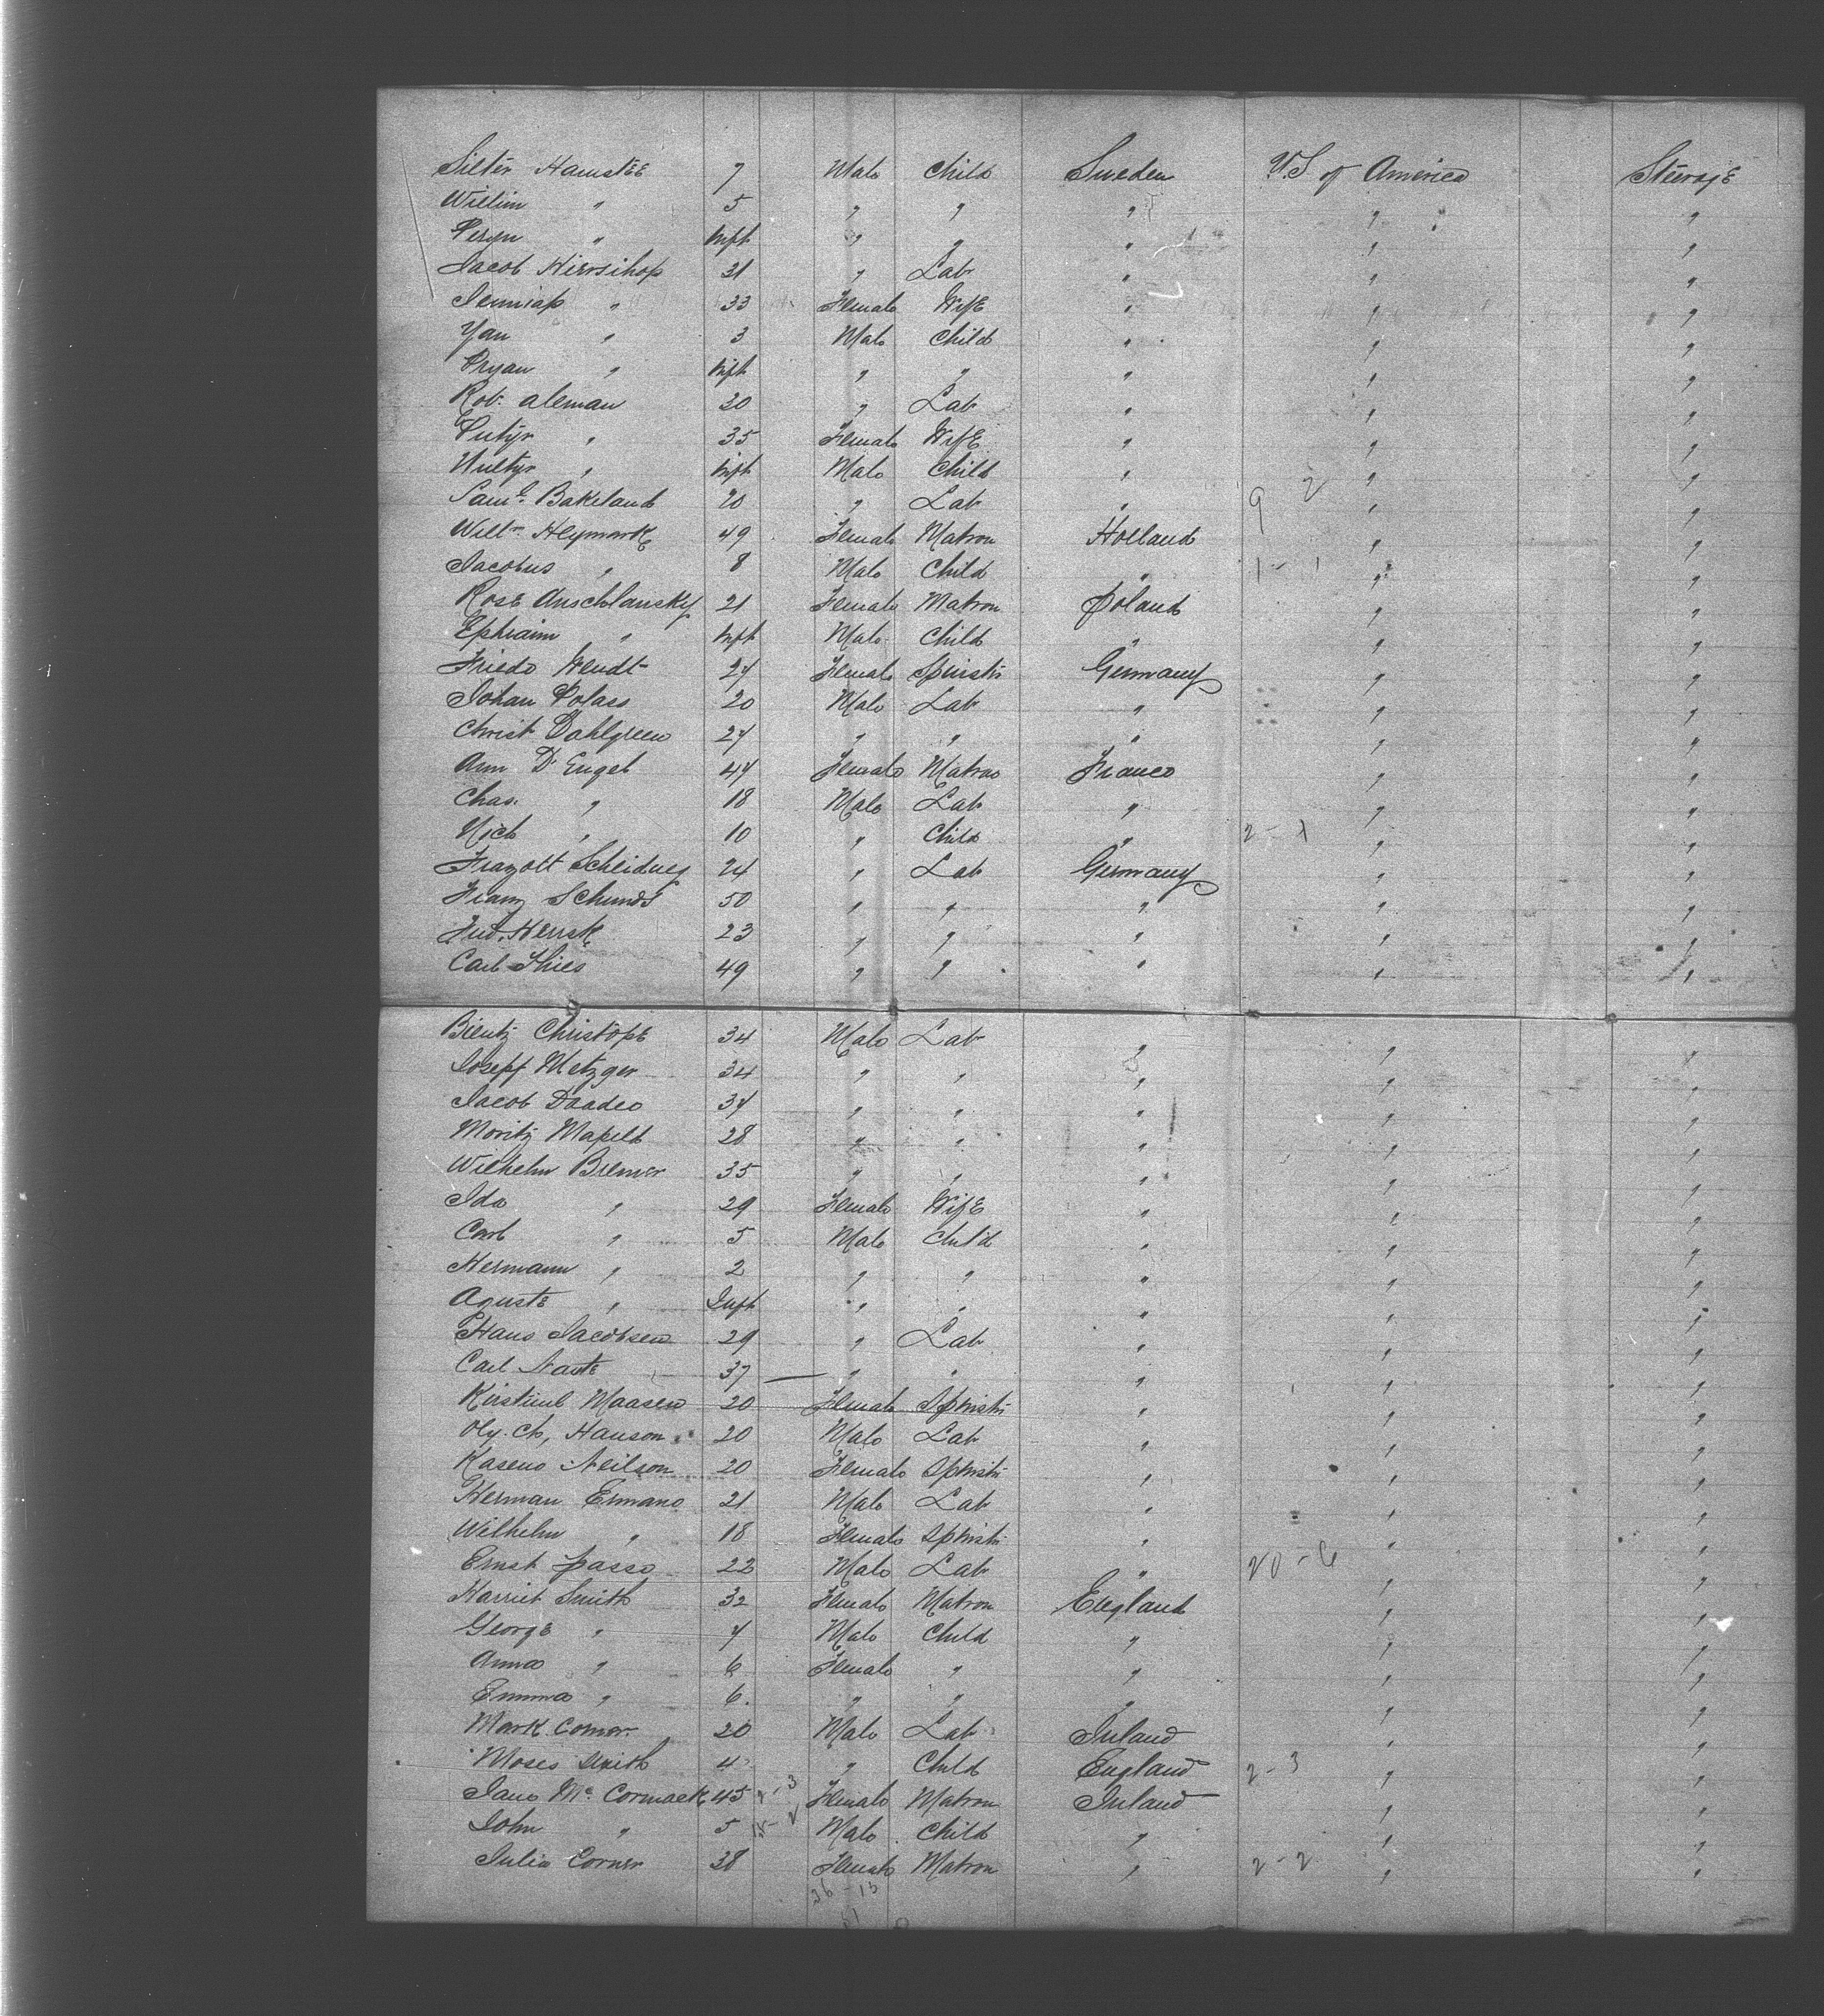 Silter Hamstee 7 Male Child Sweden U.S of America Steerage
Willim " 5 " " " " "
Peryn " Inft " " " " "
Jacob Hirrsihop 31 " Lab " " "
Jenniap " 33 Female Wife " " "
Yan " 3 Male Child " " "
Pryan " Inft " " " " "
Rob. aleman 30 " Lab " " "
Putyr " 35 Female Wife " " "
Wultyr " Inft Male Child " " "
Saml. Bakeland 20 " Lab " 9 2 " "
Willm Heymark 49 Female Matron Holland " "
Jacobus " 8 Male Child " 1 - 1 " "
Rose Auschlansky 21 Female Matron Poland " "
Ephraim " Inft Male Child " " "
Friedo Wendt 27 Female Spinstr Germany " "
Johan Polass 20 Male Lab " " "
Christ Dahlgreen 27 " " " " "
Ann D'Engel 47 Female Matron France " "
Chas. " 18 Male Lab " " "
Nich " 10 " Child " 2 - 1 " "
Frazolt Scheidney 24 " Lab Germany " "
Franz Schmidt 50 " " " " "
Herrsk 23 " " " " "
Carl Thies 49 " " " " "
Bientz Christope 34 Male Lab " " "
Joseff Metzger 34 " " " " "
Jacob Daadeo 37 " " " " "
Moritz Mapelt 28 " " " " "
Wilhelm Bremer 35 " " " " "
Ida " 29 Female Wife " " "
Carl " 5 Male Child " " "
Hermann " 2 " " " " "
Aguste " Inft " " " " "
Hans Jacobsen 29 " Lab " " "
Carl Naute 37 — " " " " "
Kirstinl Maasen 20 Female Spinstr " " "
Oly. Ch, Hanson 20 Male Lab " " "
Kaseno Neilson 20 Female Spinstr " " "
Herman Ermano 21 Male Lab " " "
Wilhelm " 18 Female Spinstr " " "
Ernst Passo 22 Male Lab " 20 - 6 " "
Harriet Smith 32 Female Matron England " "
George " 7 Male Child " " "
Anna " 6 Female " " " "
Emma " 6. " " " " "
Mark Comer 20 Male Lab Ireland " "
Moses Smith 4 " Child England 2 - 3 " "
Jane Mc Cormack 45 2 - 3 Female Matron Ireland " "
John " 5 15 - 2 Male Child " " "
Julia Corner 38 Female Matron " 2 - 2 " "
36 - 15
51